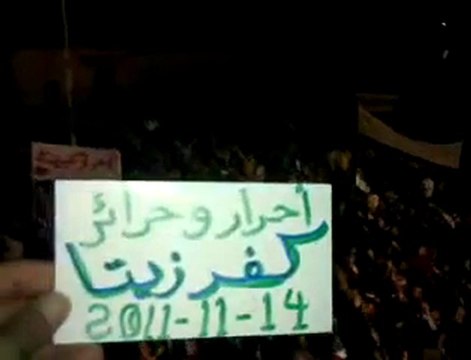 أحرار وحرائر
كفرزيتا
2011-11-14